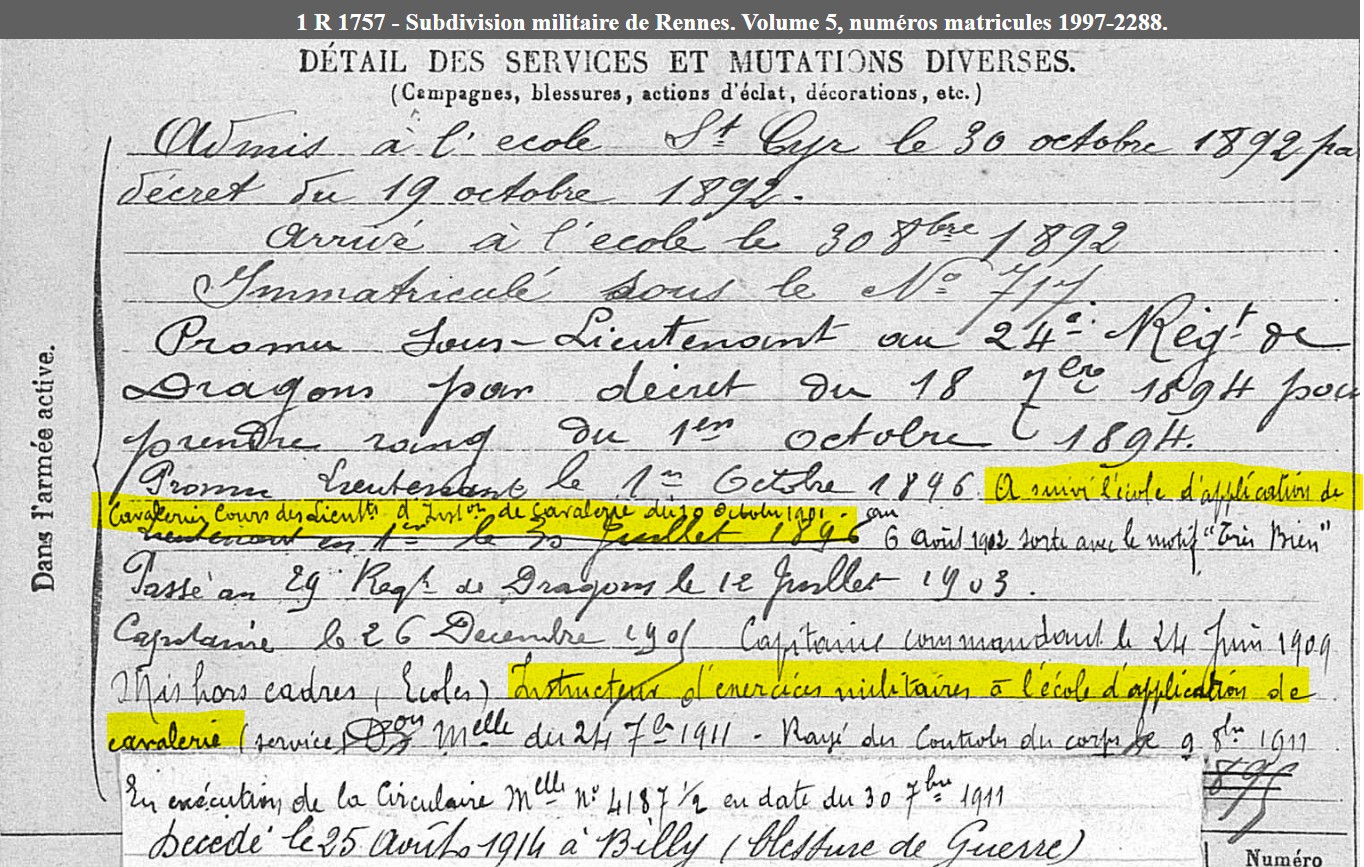 1 R 1757 - Subdivision militaire de Rennes. Volume 5, numéros matricules 1997-2288.
DÉTAIL DES SERVICES ET MUTATIONS DIVERSES.
(Campagnes, blessures, actions d'éclat, décorations, etc.)
Dans l'armée active.
Admis à l'ecole St Cyr le 30 octobre 1892 pa
décret du 19 octobre 1892.
Arrivé à l'ecole le 30 8bre 1892
Immatriculé sous le No 717
Promu Sous-Lieutenant au 24e Régt de
Dragons par décret du 18 7bre 1894 pou
prendre rang du 1er octobre 1894.
Promu Lieutenant le 1er Octobre 1896. A suivi l'école d'application de
Cavalerie, Cours des Lieutts d'Inston de cavalerie du 10 Octobre 1901. au
Lieutenant en 1er le 30 Juillet 1896 6 Août 1902 sorti avec le motif "Très Bien"
Passé au 29 Regt de Dragons le 12 Juillet 1903.
Capitaine le 26 Decembre 1905 Capitaine commandant le 24 Juin 1909
Mis hors cadres (Ecoles) Instructeur d'exercices militaires à l'école d'application de
cavalerie (service) Don Melle du 24 7bre 1911 - Rayé des Controles du corps le 9 8bre 1911
En exécution de la Circulaire Melle No 4187 1/2 en date du 30 7bre 1911
Decedé le 25 Août 1914 à Billy (blessure de Guerre)
Numéro